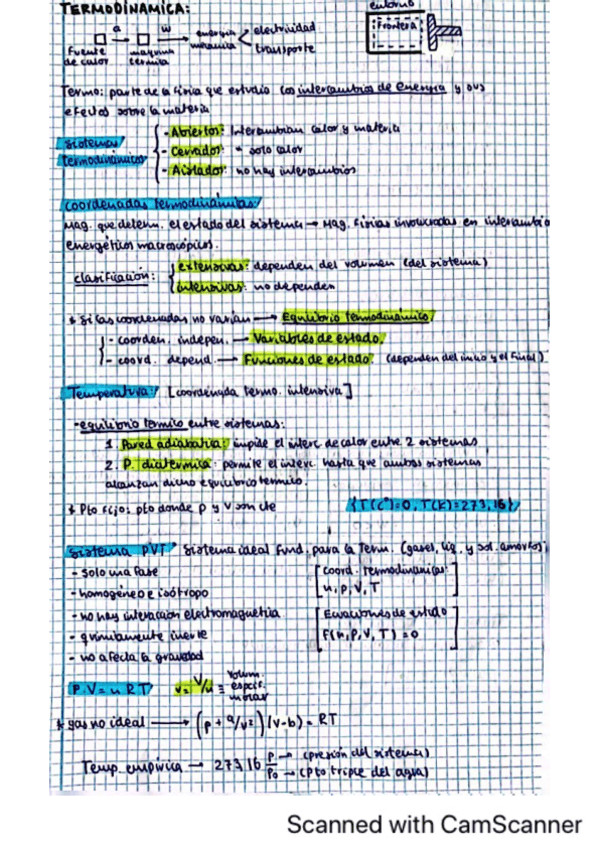 TERMODINAMICA:
entorno
Frontera
Q W
Fuente de calor
maquina termica
energia mecanica
electricidad
transporte
Termo: parte de la fisica que estudia los intercambios de Energia y sus
efectos sobre la materia
Sistemas termodinámicos
- Abiertos: Intercambian calor y materia
- Cerrados: " solo calor
- Aislados: no hay intercambios
Coordenadas termodinámicas
Mag. que determ. el estado del sistema → Mag. Fisicas involucradas en intercambio
energéticos macroscópicos.
clasificación:
extensivas: dependen del volumen (del sistema)
intensivas: no dependen
* Si las coordenadas no varian → Equilibrio termodinamico
- coorden. indepen. → Variables de estado.
- coord. depend. → Funciones de estado. (dependen del inicio y el final)
Temperatura: [coordenada termo. intensiva]
- equilibrio termico entre sistemas:
1. Pared adiabatica: impide el interc de calor entre 2 sistemas
2. P. diatermica: permite el interc. hasta que ambos sistemas
alcanzan dicho equilibrio termico.
* Pto Fijo: pto donde p y V son cte
{T(Cº)=0, T(K)=273,16}
Sistema PVT Sistema ideal Fund. para la Term. (gases, liq. y sol. amorfos)
- solo una fase
- homogéneo e isótropo
- no hay interacción electromagnetica
- quimicamente inerte
- no afecta la gravedad
[coord. Termodinamicas:
n, p, V, T]
[Ecuaciones de estado
F(n, P, V, T) = 0]
P·V = n RT
v = V/n ≡ Volum. especif. molar
* gas no ideal → (p + a/v²)(v-b) = RT
Temp. empirica → 273,16 P/P₀
P → (presión del sistema)
P₀ → (Pto triple del agua)
Scanned with CamScanner